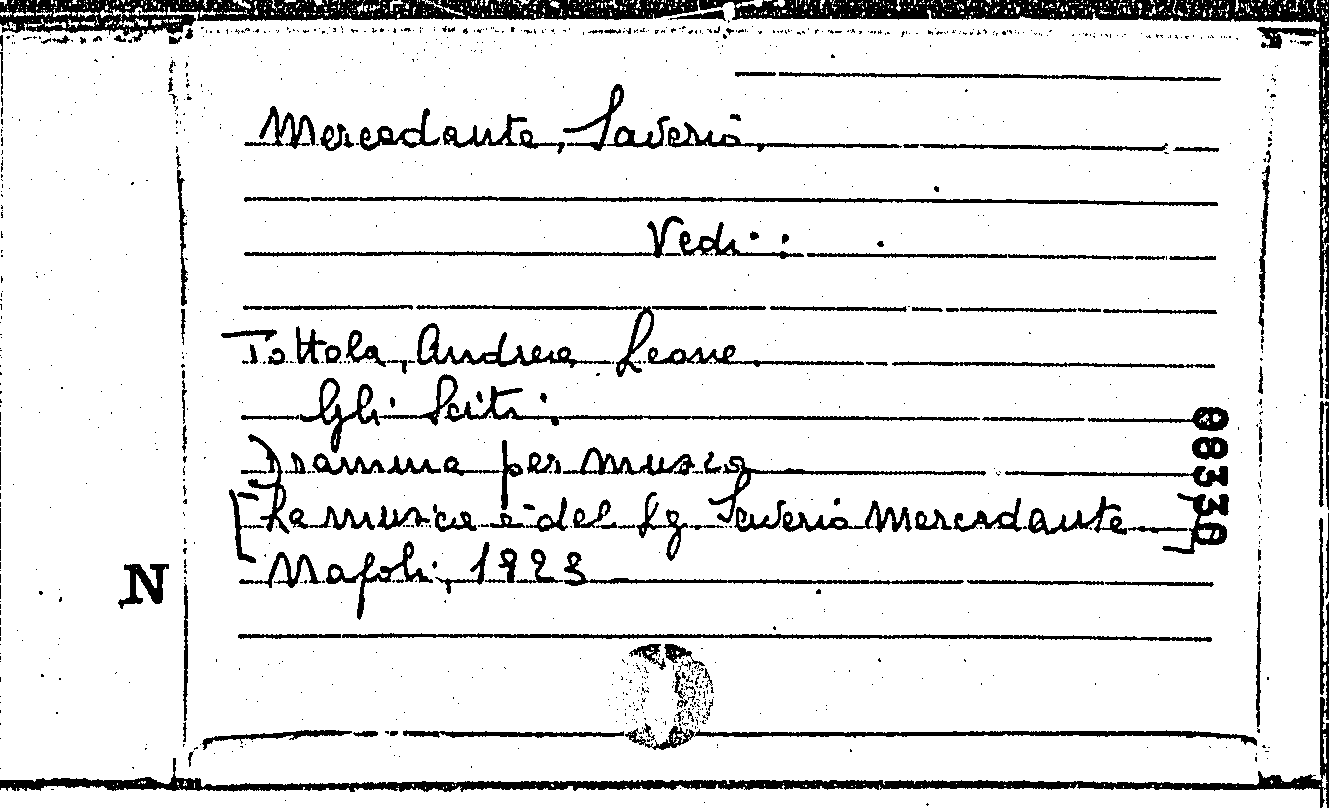 Mercadante, Saverio.
Vedi:
Tottola, Andrea Leone.
Gli Sciti.
Dramma per musica
[La musica è del Sg. Saverio Mercadante]
Napoli, 1823
08330
N